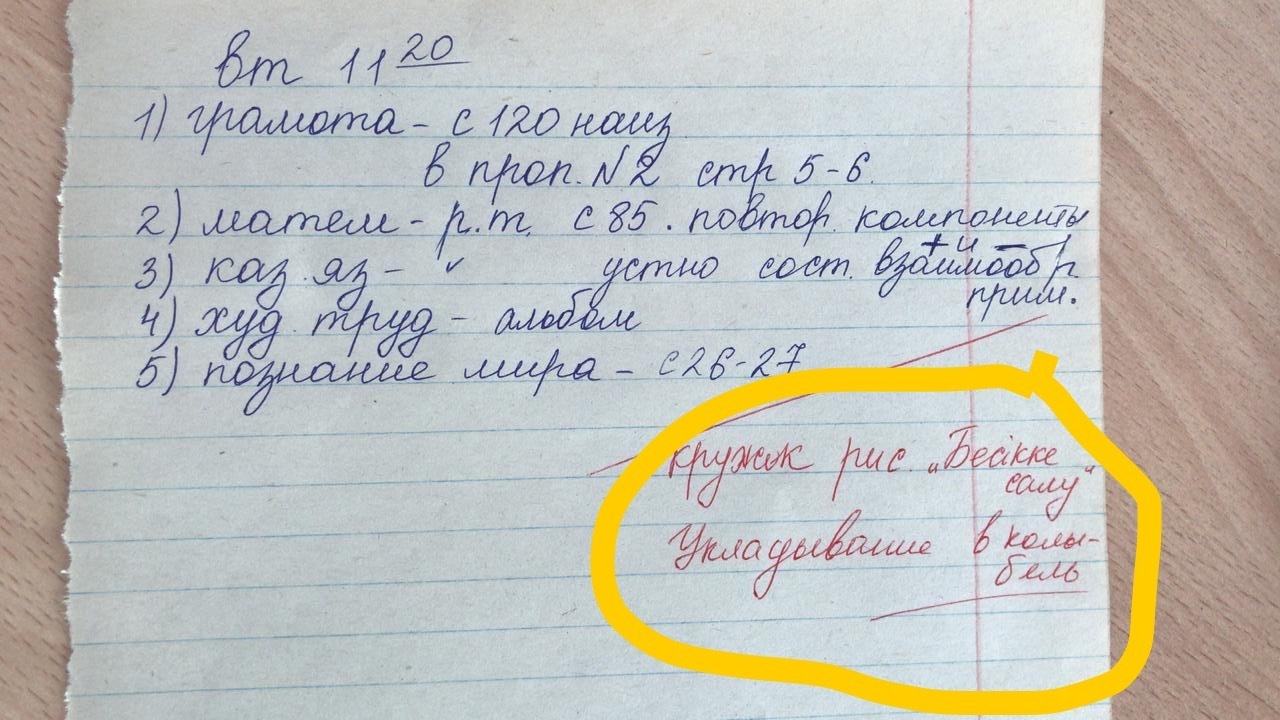 вт 11 20
1) грамота - с 120 наиз
в проп. №2 стр 5-6.
2) матем - р.т. с 85. повтор. компоненты + и -
3) каз яз - " устно сост. взаимообр. прим.
4) худ. труд - альбом
5) познание мира - с 26-27
кружок рис. „Бесікке
салу"
Укладывание в колы-
бель